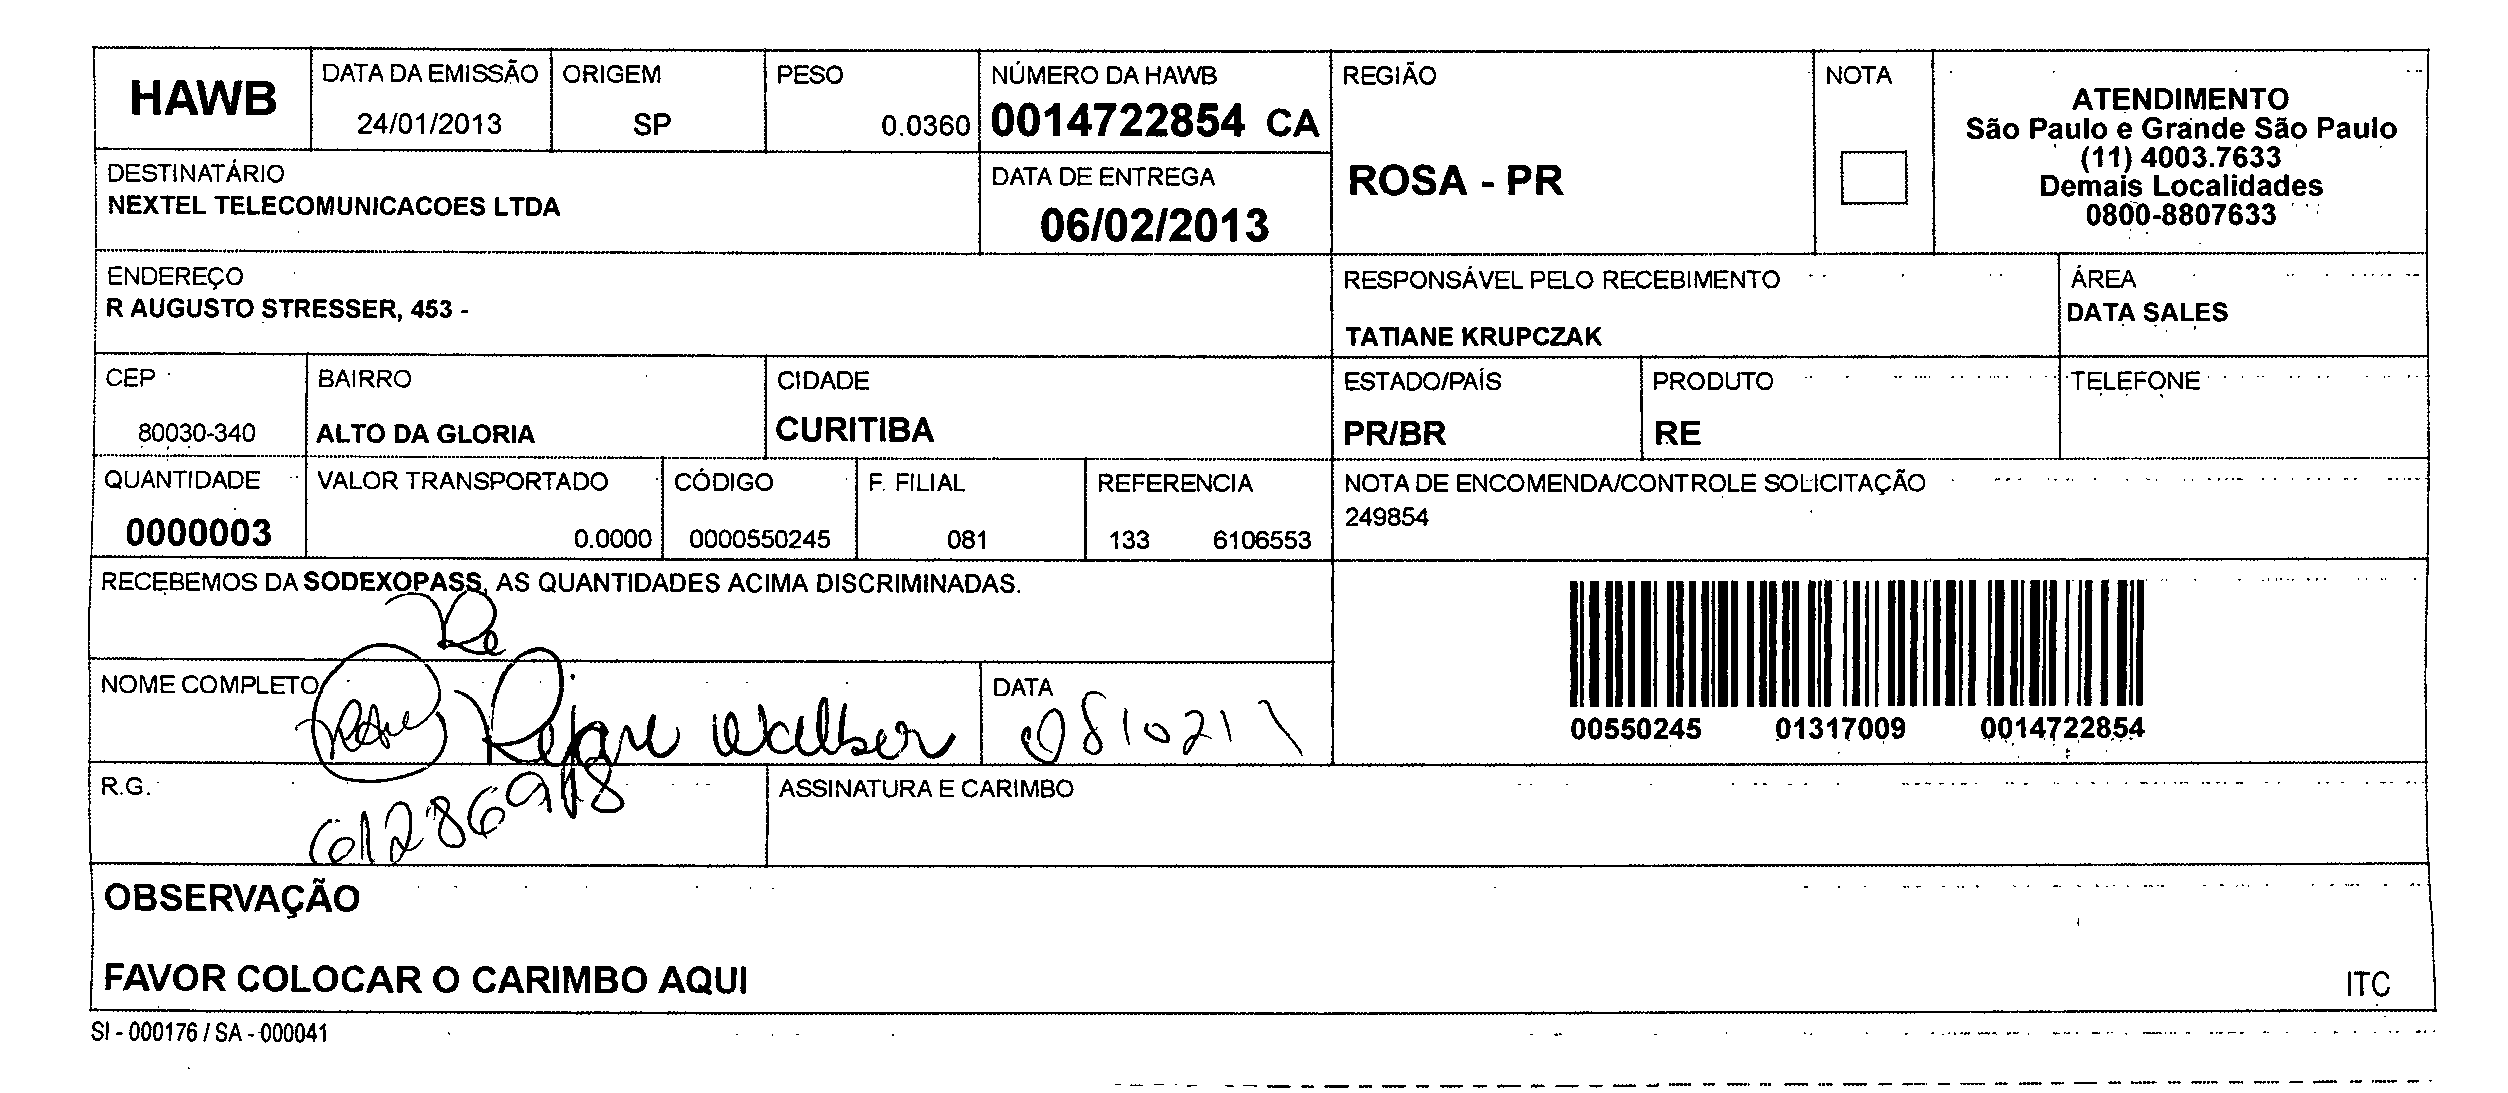 HAWB
DATA DA EMISSÃO
24/01/2013
ORIGEM
SP
PESO
0.0360
NÚMERO DA HAWB
0014722854 CA
REGIÃO
ROSA - PR
NOTA
ATENDIMENTO
São Paulo e Grande São Paulo
(11) 4003.7633
Demais Localidades
0800-8807633
DESTINATÁRIO
NEXTEL TELECOMUNICACOES LTDA
DATA DE ENTREGA
06/02/2013
ENDEREÇO
R AUGUSTO STRESSER, 453 -
RESPONSÁVEL PELO RECEBIMENTO
TATIANE KRUPCZAK
ÁREA
DATA SALES
CEP
80030-340
BAIRRO
ALTO DA GLORIA
CIDADE
CURITIBA
ESTADO/PAÍS
PR/BR
PRODUTO
RE
TELEFONE
QUANTIDADE
0000003
VALOR TRANSPORTADO
0.0000
CÓDIGO
0000550245
F. FILIAL
081
REFERENCIA
133 6106553
NOTA DE ENCOMENDA/CONTROLE SOLICITAÇÃO
249854
RECEBEMOS DA SODEXOPASS, AS QUANTIDADES ACIMA DISCRIMINADAS.
Re
NOME COMPLETO
Rejane Walber
DATA
08/02/
00550245 01317009 0014722854
R.G.
ASSINATURA E CARIMBO
OBSERVAÇÃO
FAVOR COLOCAR O CARIMBO AQUI
ITC
SI - 000176 / SA - 000041